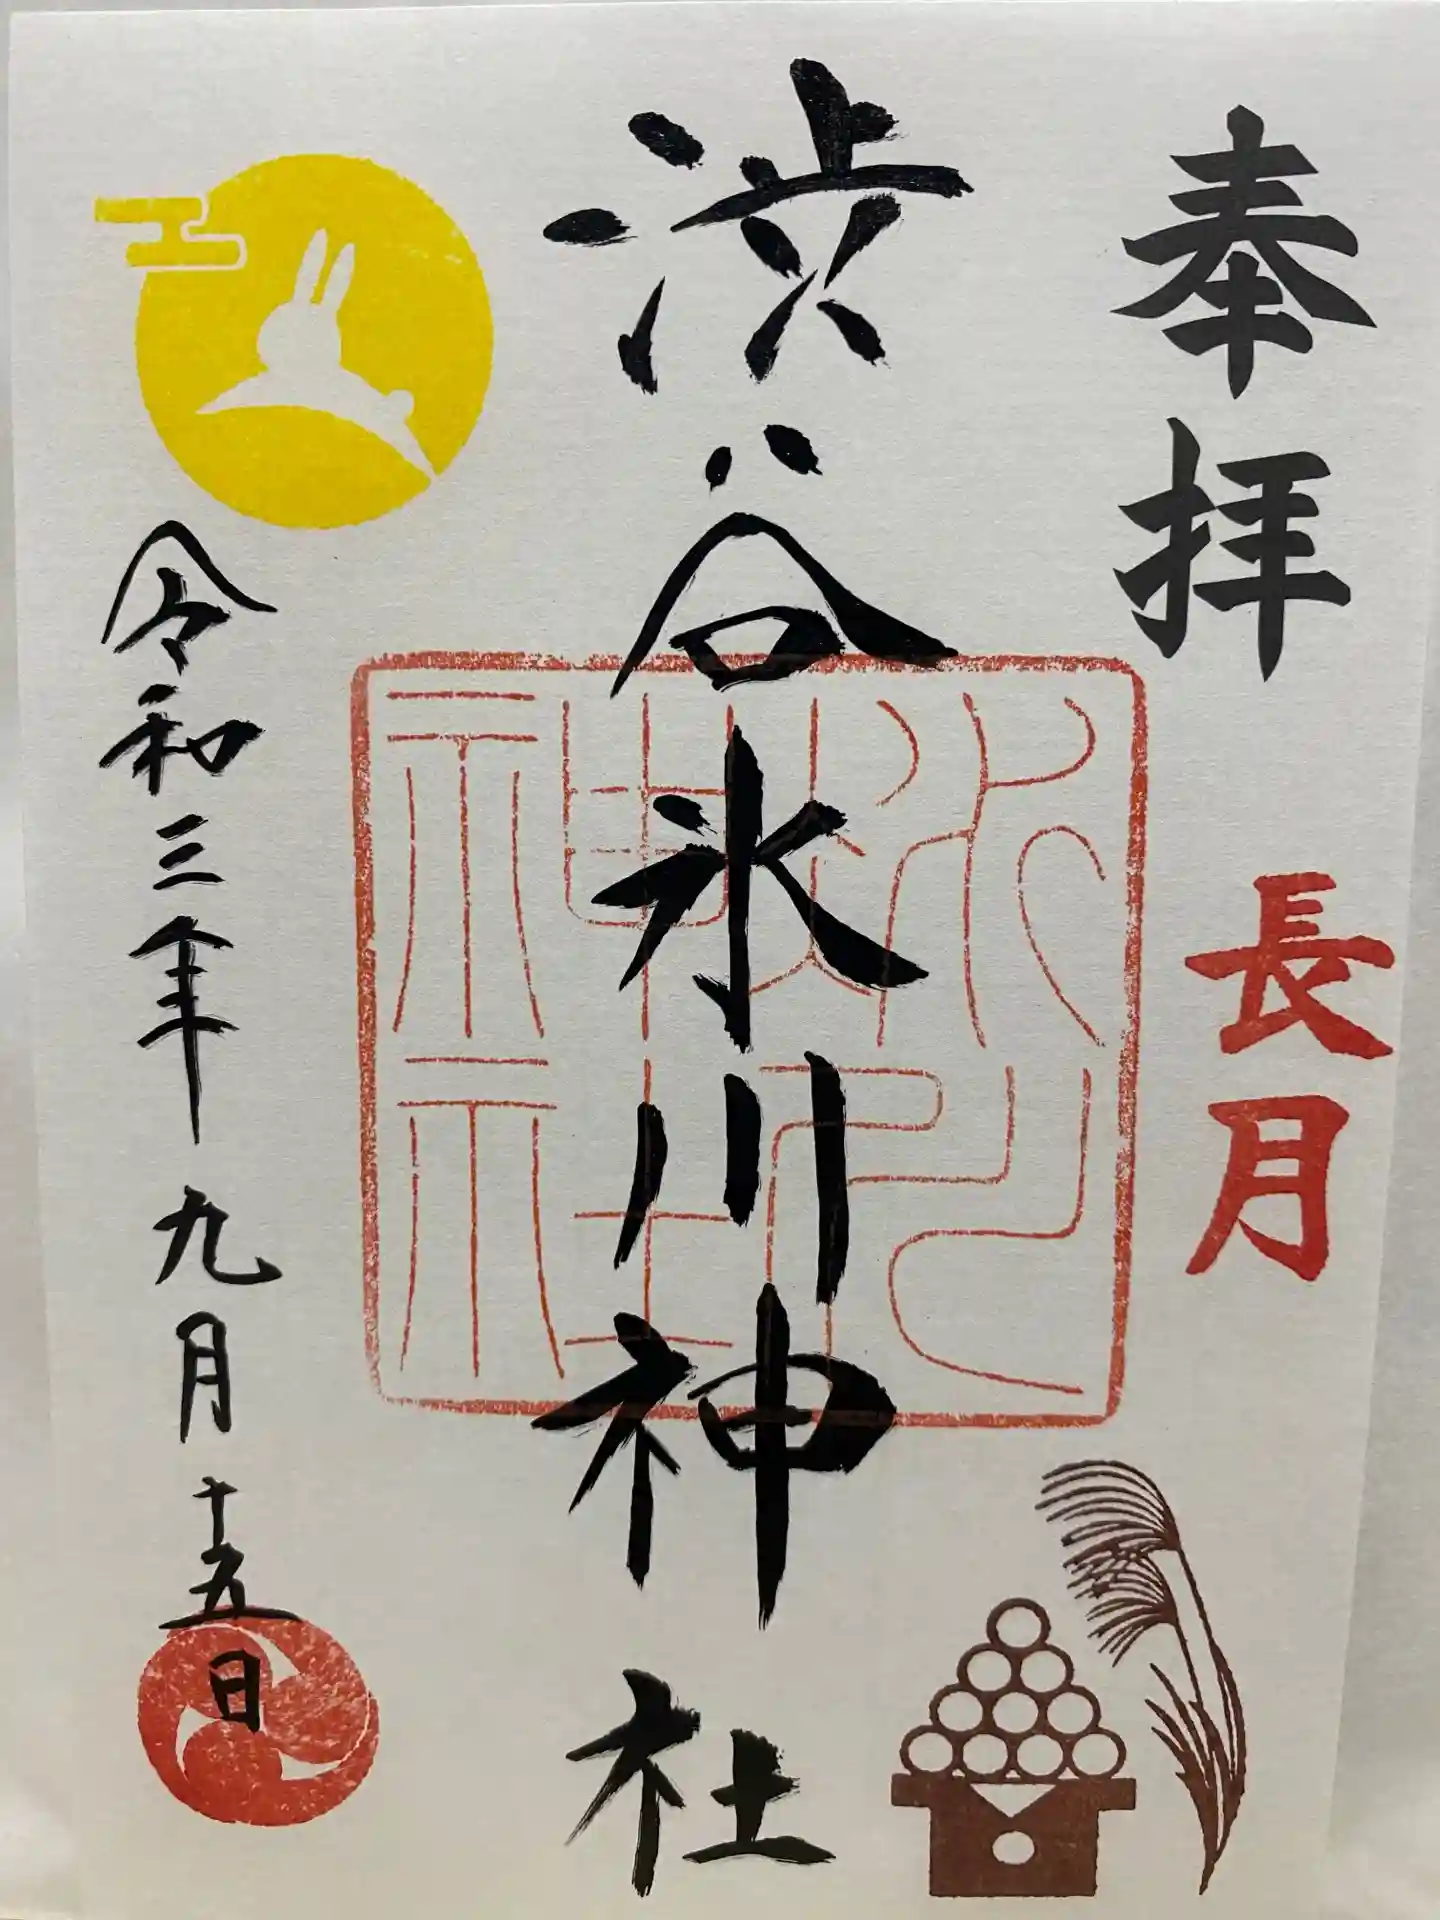 奉拝
長月
渋谷氷川神社
氷川神社
令和三年九月十五日